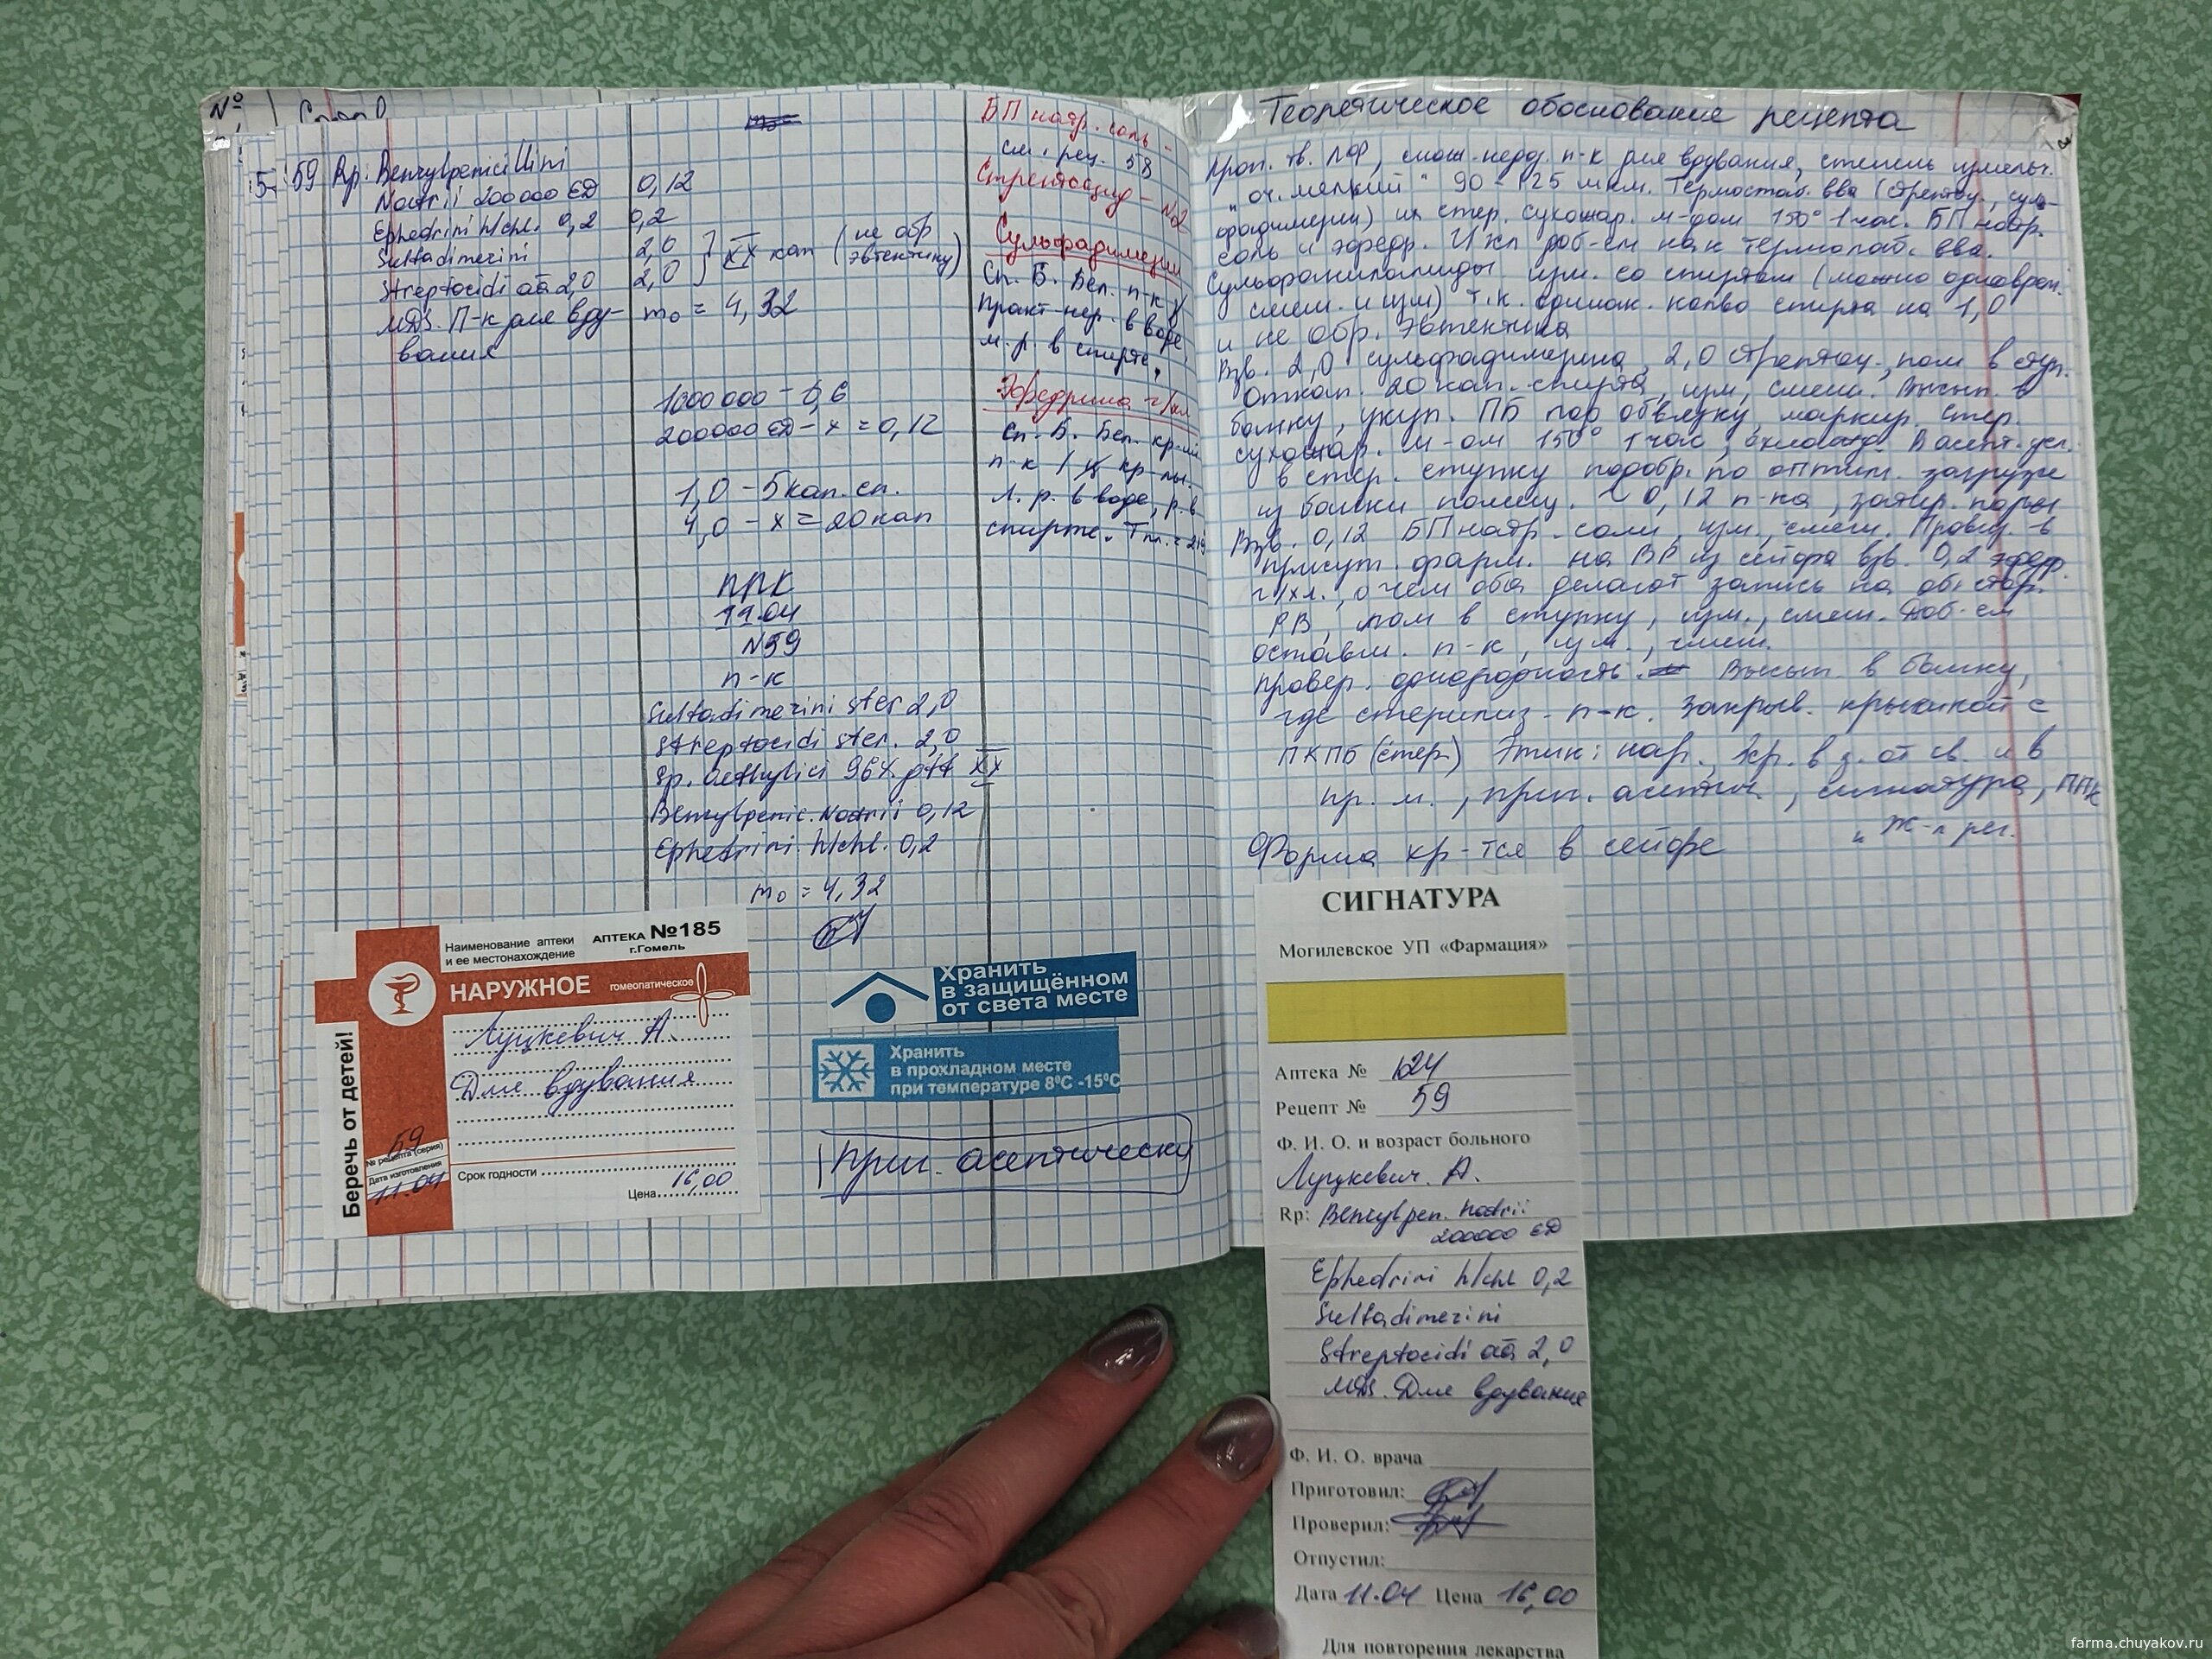 №
5 59 Rp: Benzylpenicillini
Natrii 200000 ЕД 0,12
Ephedrini h/chl. 0,2 0,2
Sulfadimezini 2,0
Streptocidi āā 2,0 2,0
XX кап (не обр эвтектику)
MDS. П-к для вду-
вания
m₀ = 4,32
1000000 – 0,6
200000 ЕД – x = 0,12
1,0 – 5 кап. сп.
4,0 – x = 20 кап
ППК
11.04
N59
п-к
Sulfadimezini ster 2,0
Streptocidi ster. 2,0
Sp. aethylici 96% gtt XX
Benzylpenic. Natrii 0,12
Ephedrini h/chl. 0,2
m₀ = 4,32
БП натр. соль –
см. рец. 58
Стрептоцид – №2
Сульфадимезин
Сп. Б. Бел. п-к
Практ. нер. в воде,
м. р. в спирте.
Эфедрина г/хл
Сп. Б. Бел. кр-ий
п-к / кр-лы.
Л. р. в воде, р. в
спирте. Тпл. = 219
Наименование аптеки
и ее местонахождение
АПТЕКА №185
г.Гомель
НАРУЖНОЕ гомеопатическое
Луцкевич А.
Для вдувания
Беречь от детей!
59
№ рецепта (серия)
Дата изготовления
11.04
Срок годности
Цена 16,00
Хранить
в защищённом
от света месте
Хранить
в прохладном месте
при температуре 8⁰С -15⁰С
Приг. асептически
Теоретическое обоснование рецепта
Проп. тв. ЛФ, слож. недоз. п-к для вдувания, степень измельч.
"оч. мелкий" 90 – 125 мкм. Термостаб. вва (стрептоц., суль-
фадимезин) их стер. сухожар. м-дом 150° 1 час. БП натр.
соль и эфедр. г/хл доб-ем как термолаб. вва.
Сульфаниламиды изм. со спиртом (можно одноврем.
смеш. и изм) т.к. одинак. кол-во спирта на 1,0
и не обр. эвтектика
Взв. 2,0 сульфадимезина, 2,0 стрептоц., пом в ступ.
Откап. 20 кап. спирта, изм, смеш. Высып. в
банку, укуп. ПБ под обвязку, маркир. Стер.
сухожар. м-ом 150° 1 час, охлажд. В асепт. усл.
в стер. ступку подобр. по оптим. загрузке
из банки помещ. ~ 0,12 п-ка, затир. поры
Взв. 0,12 БП натр. соли, изм., смеш. Провиз. в
присут. фарм. на ВР из сейфа взв. 0,2 эфедр.
г/хл., о чем оба делают запись на об. стор.
РВ, пом в ступку, изм., смеш. Доб-ем
оставш. п-к, изм., смеш.
Провер. однородность. Высып. в банку,
где стерилиз. п-к. Закрыв. крышкой с
ПКПБ (стер.) Этик: нар., хр. в з. от св. и в
пр. м., приг. асептич., сигнатура, ППК
Ж-л рег.
Форма хр-тся в сейфе
СИГНАТУРА
Могилевское УП «Фармация»
Аптека № 124
Рецепт № 59
Ф. И. О. и возраст больного
Луцкевич. А.
Rp: Benzylpen. Natrii
200000 ЕД
Ephedrini h/chl 0,2
Sulfadimezini
Streptocidi āā 2,0
MDS. Для вдувания
Ф. И. О. врача
Приготовил:
Проверил:
Отпустил:
Дата 11.04 Цена 16,00
Для повторения лекарства
farma.chuyakov.ru